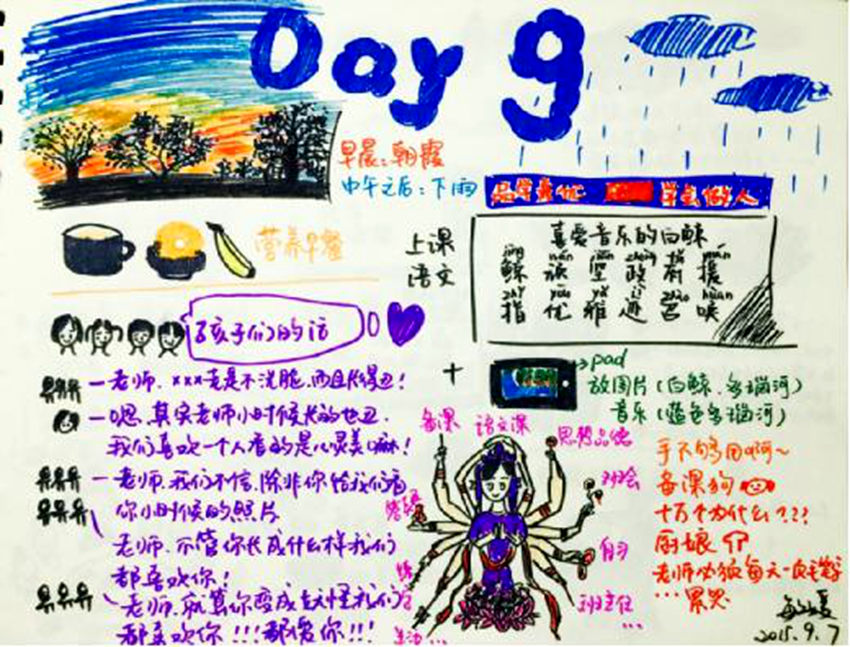 Day 9
早晨：朝霞
中午之后：下雨
品学兼优 学会做人
营养早餐
上课
语文
喜爱音乐的白鲸
jīng nán jiān zhèng yuán
鲸 难 坚 政 府 援
zhǐ yōu yǎ jì huàn
指 优 雅 迹 唤
孩子们的话
+
pad
放图片（白鲸、多瑙河）
音乐（蓝色多瑙河）
—老师，×××老是不洗脸，而且长得丑！
—嗯，其实老师小时候长的也丑，
我们喜欢一个人看的是心灵美嘛！
—老师，我们不信，除非你给我们看
你小时候的照片
老师，不管你长成什么样我们
都喜欢你！
老师，就算你变成妖怪我们
都喜欢你！！！都爱你！！！
备课 语文课 思想品德
班会
自习
班主任
...
生活...
手不够用啊～
备课狗
十万个为什么？？？
厨娘
老师必须每天一页毛笔字
...累哭
2015.9.7